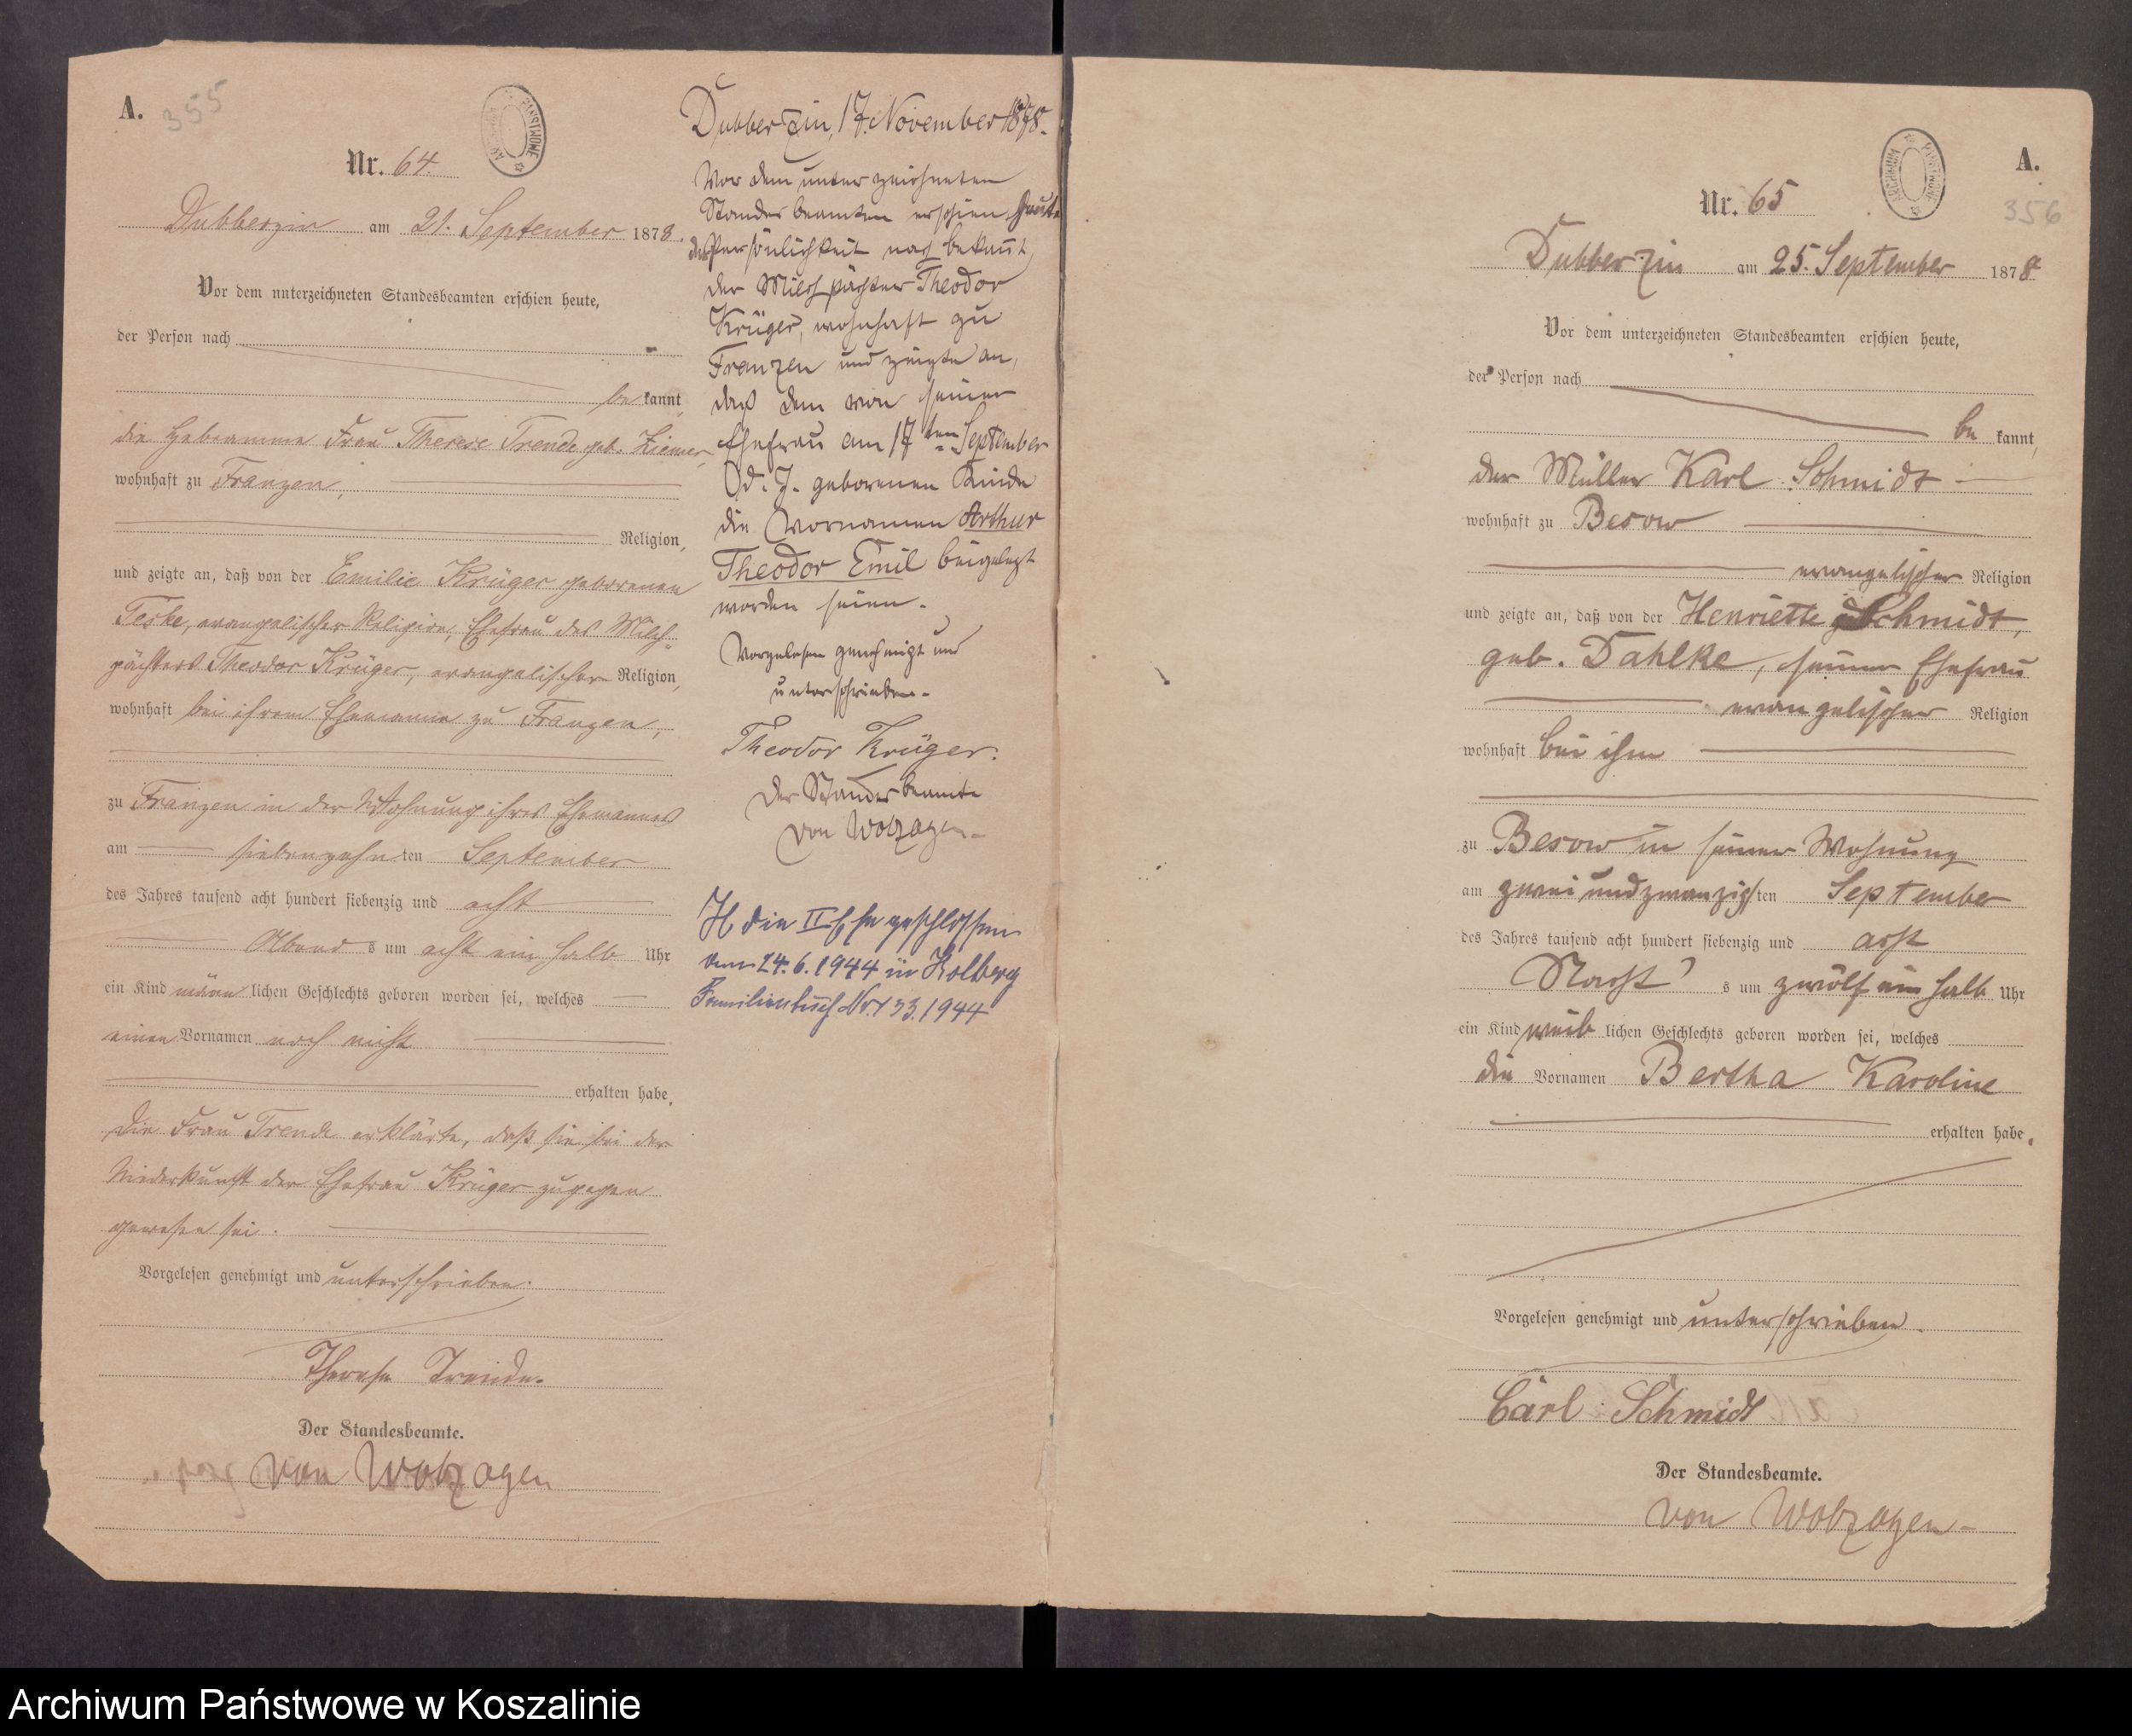 A.
355
ARCHIWUM PAŃSTWOWE
Nr. 64.
Dubberzin am 21. September 1878.
Vor dem unterzeichneten Standesbeamten erschien heute,
der Person nach
bekannt,
die Hebeamme Frau Therese Trende geb. Ziemer,
wohnhaft zu Franzen,
Religion,
und zeigte an, daß von der Emilie Krüger geborenen
Teske, evangelischer Religion, Ehefrau des Milch-
pächters Theodor Krüger, evangelischer Religion,
wohnhaft bei ihrem Ehemanne zu Franzen,
zu Franzen in der Wohnung ihres Ehemannes
am siebenzehnten September
des Jahres tausend acht hundert siebenzig und acht
Abends um acht ein halb Uhr
ein Kind männlichen Geschlechts geboren worden sei, welches
einen Vornamen noch nicht
erhalten habe.
Die Frau Trende erklärte, daß sie bei der
Niederkunft der Ehefrau Krüger zugegen
gewesen sei.
Vorgelesen genehmigt und unterschrieben.
Therese Trende.
Der Standesbeamte.
von Wobzogen
Dubberzin, 17. November 1878.
Vor dem unterzeichneten
Standesbeamten erschien heute
der Persönlichkeit nach bekannt,
der Milchpächter Theodor
Krüger, wohnhaft zu
Franzen und zeigte an,
daß dem von seiner
Ehefrau am 17ten September
d. J. geborenen Kinde
die Vornamen Arthur
Theodor Emil beigelegt
worden seien.
Vorgelesen genehmigt und
unterschrieben.
Theodor Krüger.
Der Standesbeamte
von Wobzogen
H die II Ehe geschlossen
am 24.6.1944 in Kolberg
Familienbuch Nr. 133.1944
ARCHIWUM PAŃSTWOWE
A.
356
Nr. 65
Dubberzin am 25. September 1878
Vor dem unterzeichneten Standesbeamten erschien heute,
der Person nach
bekannt,
der Müller Karl Schmidt
wohnhaft zu Besow
evangelischer Religion
und zeigte an, daß von der Henriette Schmidt,
geb. Dahlke, seiner Ehefrau
evangelischer Religion
wohnhaft bei ihm
zu Besow in seiner Wohnung
am zwei und zwanzigsten September
des Jahres tausend acht hundert siebenzig und acht
Nachts um zwölf ein halb Uhr
ein Kind weiblichen Geschlechts geboren worden sei, welches
die Vornamen Bertha Karoline
erhalten habe.
Vorgelesen genehmigt und unterschrieben.
Carl Schmidt
Der Standesbeamte.
von Wobzogen
Archiwum Państwowe w Koszalinie